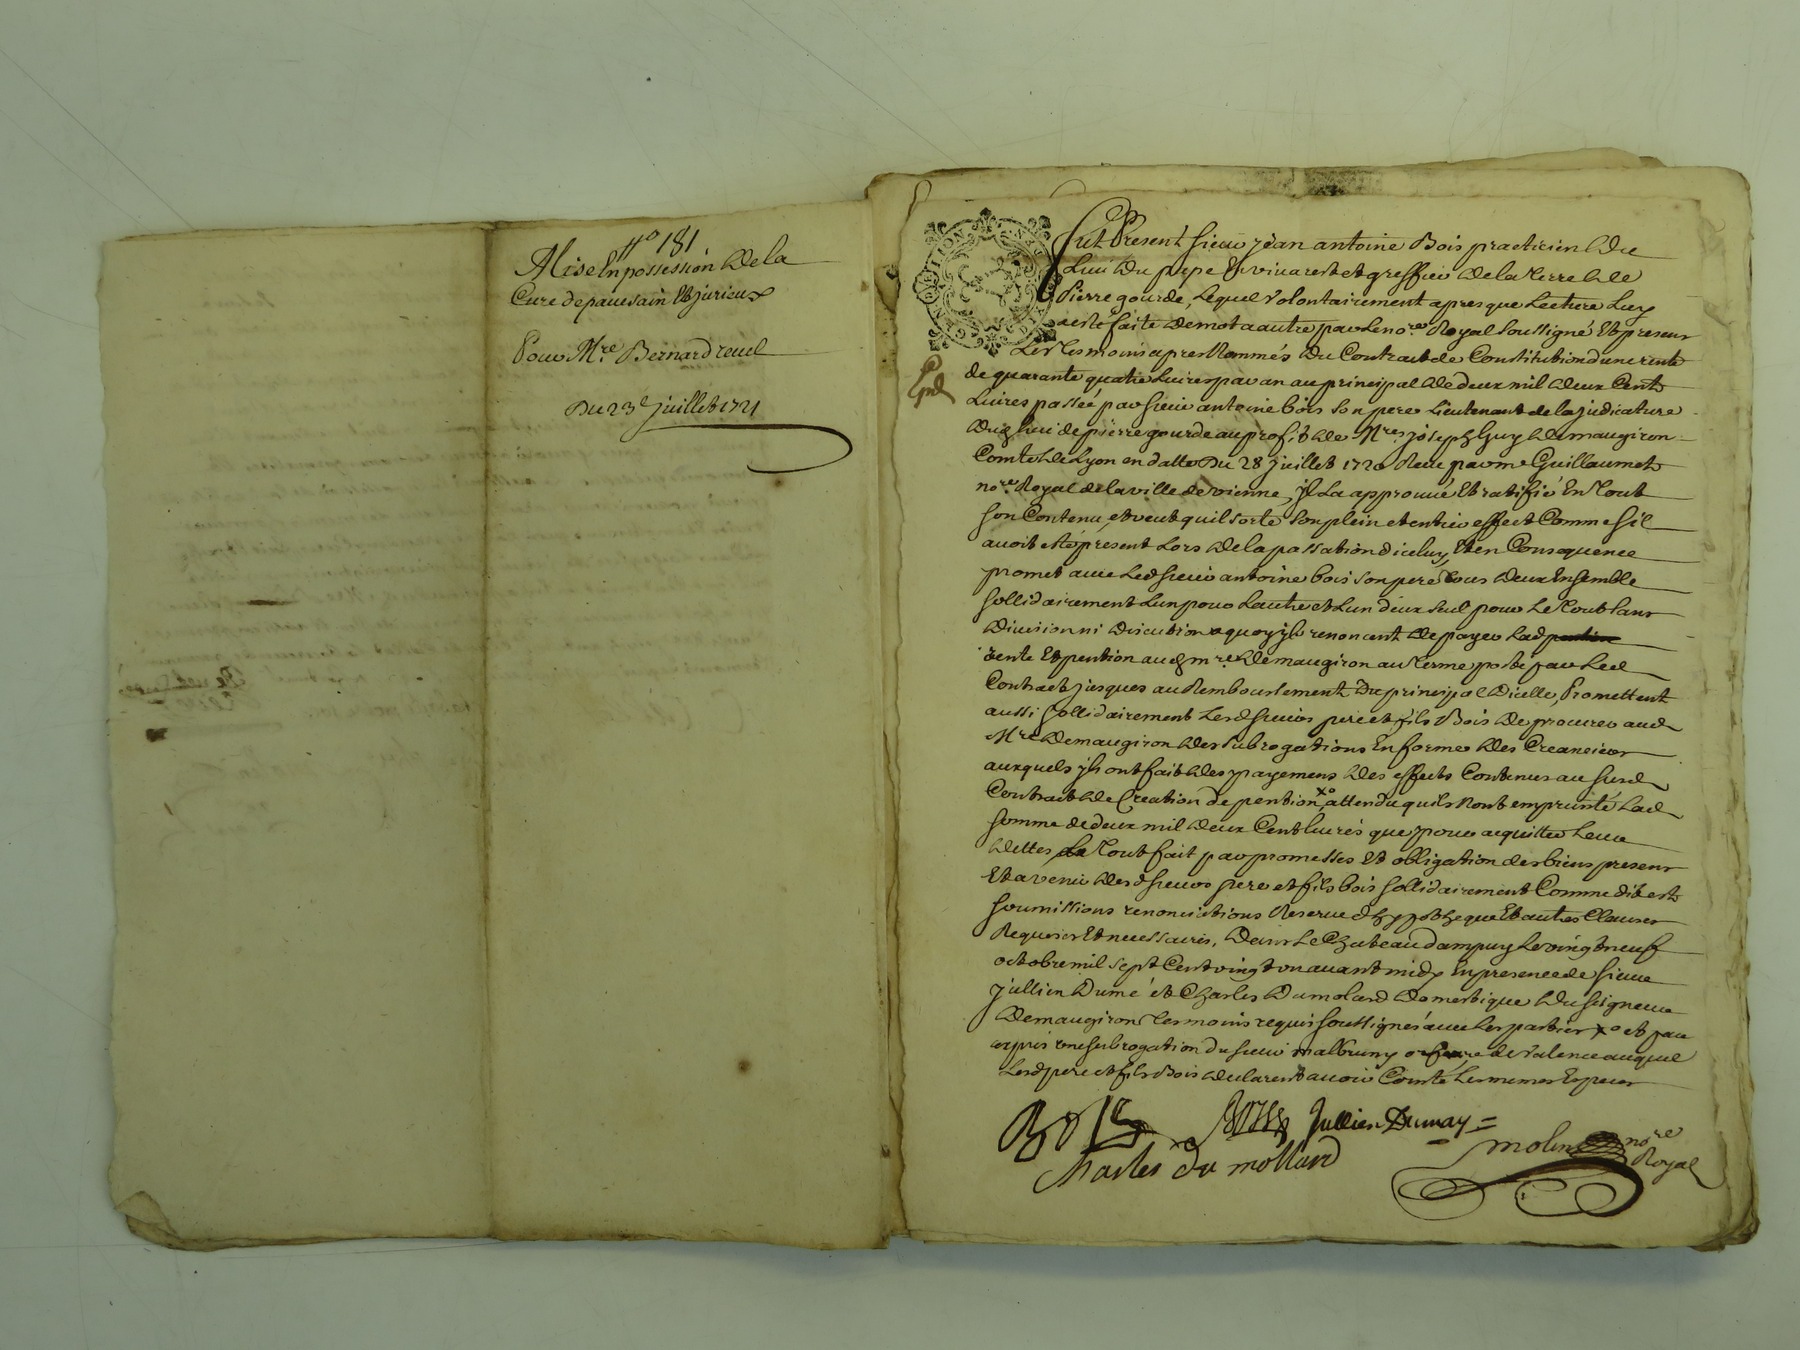 No 181
Mise En possession de la
Cure de pavesain Et jurieux
Pour Mre Bernard revel
Du 23e Juillet 1721
Fut Present sieur jean antoine Bois practicien du
Lieu du pepe En vivarest et greffier de la terre de
Pierre gourde, lequel volontairement apres que lecture luy
a esté faite de mot a autre par le nore Royal soussigné Et presens
Les tesmoins apres Nommés du Contract de Constitution d'une rente
de quarante quatre Livres par an au principal de deux mil deux Cents
Livres passée par sieur antoine bois son pere Lieutenant de la judicature
dud lieu de pierre gourde au profit de Mre joseph Guy de maugiron
Comte de Lyon en datte du 28 juillet 1720 Receu par me Guillaumet
nore Royal de la ville de vienne, jl La approuvé Et ratifié En tout
son Contenu, et veut qu'il sorte son plein et entier effect Comme sil
avoit esté present Lors de la passation d'iceluy Et en Consequence
promet avec Led sieur antoine bois son pere tous deux Ensemble
sollidairement L'un pour L'autre et L'un d'eux seul pour Le tout sans
division ni discution a quoy jls renoncent de payer Lad
rente Et pention aud mre de maugiron au terme porté par Led
Contract jusques au Remboursement du principal d'icelle, Promettent
aussi sollidairement Lesd sieurs pere et fils Bois de procurer aud
Mre de maugiron des subrogations En forme des Creanciers
auxquels jls ont fait des payemens des effects Contenus au susd
Contract de Creation de pention, xo attendu quils N'ont emprunté Lad
somme de deux mil deux Cent livres que pour acquitter Leurs
dettes Le tout fait par promesses Et obligation des biens presens
Et avenir desd sieurs pere et fils bois sollidairement Comme dit est
soumissions renonciations Reserve d'hypotheque Et autres Clauses
Requises Et necessaires, dans Le Chateau d'ampuy Le vingt neuf
octobre mil sept Cent vingt un avant midy En presence de sieur
jullien Dumé et Charles Dumolard domestique du seigneur
de maugiron tesmoins requis soussignés avec Les parties xo et par
exprés une subrogation du sieur malbruny orfevre de valence auquel
Lesd pere et fils Bois declarent avoir Compté Les memes Especes
Bois Bois Jullien Dumay
Charles du mollard
molin nore
Royal